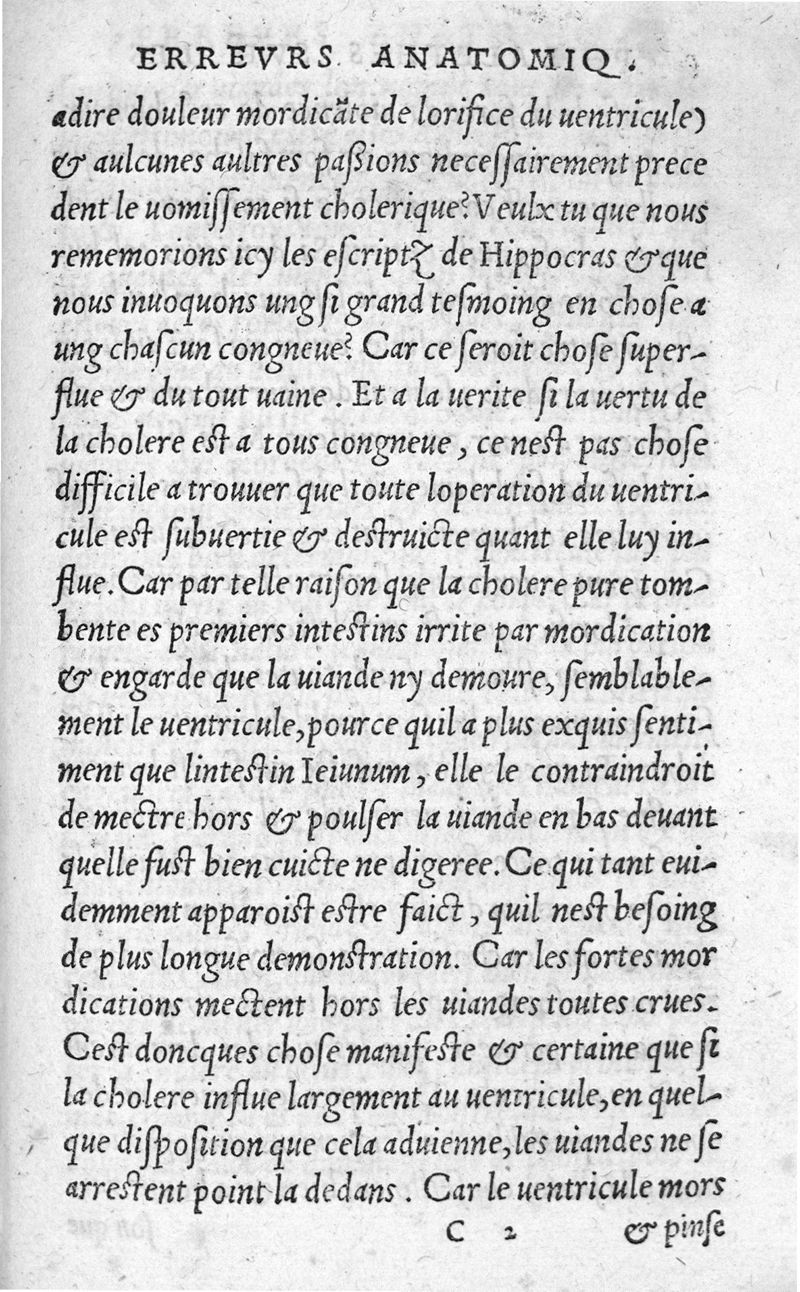 ERREVRS ANATOMIQ.
adire douleur mordicãte de lorifice du uentricule)
& aulcunes aultres paßions neceſſairement prece
dent le uomiſſement cholerique? Veulx tu que nous
rememorions icy les eſcriptz de Hippocras & que
nous inuoquons ung ſi grand teſmoing en choſe a
ung chaſcun congneue? Car ce ſeroit choſe ſuper-
flue & du tout uaine . Et a la uerite ſi la uertu de
la cholere eſt a tous congneue , ce neſt pas choſe
difficile a trouuer que toute loperation du uentri-
cule eſt ſubuertie & deſtruicte quant elle luy in-
flue. Car par telle raiſon que la cholere pure tom-
bente es premiers inteſtins irrite par mordication
& engarde que la uiande ny demoure, ſemblable-
ment le uentricule, pource quil a plus exquis ſenti-
ment que linteſtin Ieiunum , elle le contraindroit
de mectre hors & poulſer la uiande en bas deuant
quelle fuſt bien cuicte ne digeree. Ce qui tant eui-
demment apparoiſt eſtre faict , quil neſt beſoing
de plus longue demonſtration. Car les fortes mor
dications mectent hors les uiandes toutes crues.
Ceſt doncques choſe manifeſte & certaine que ſi
la cholere influe largement au uentricule, en quel-
que diſpoſition que cela aduienne, les uiandes ne ſe
arreſtent point la dedans . Car le uentricule mors
C 2 & pinſe